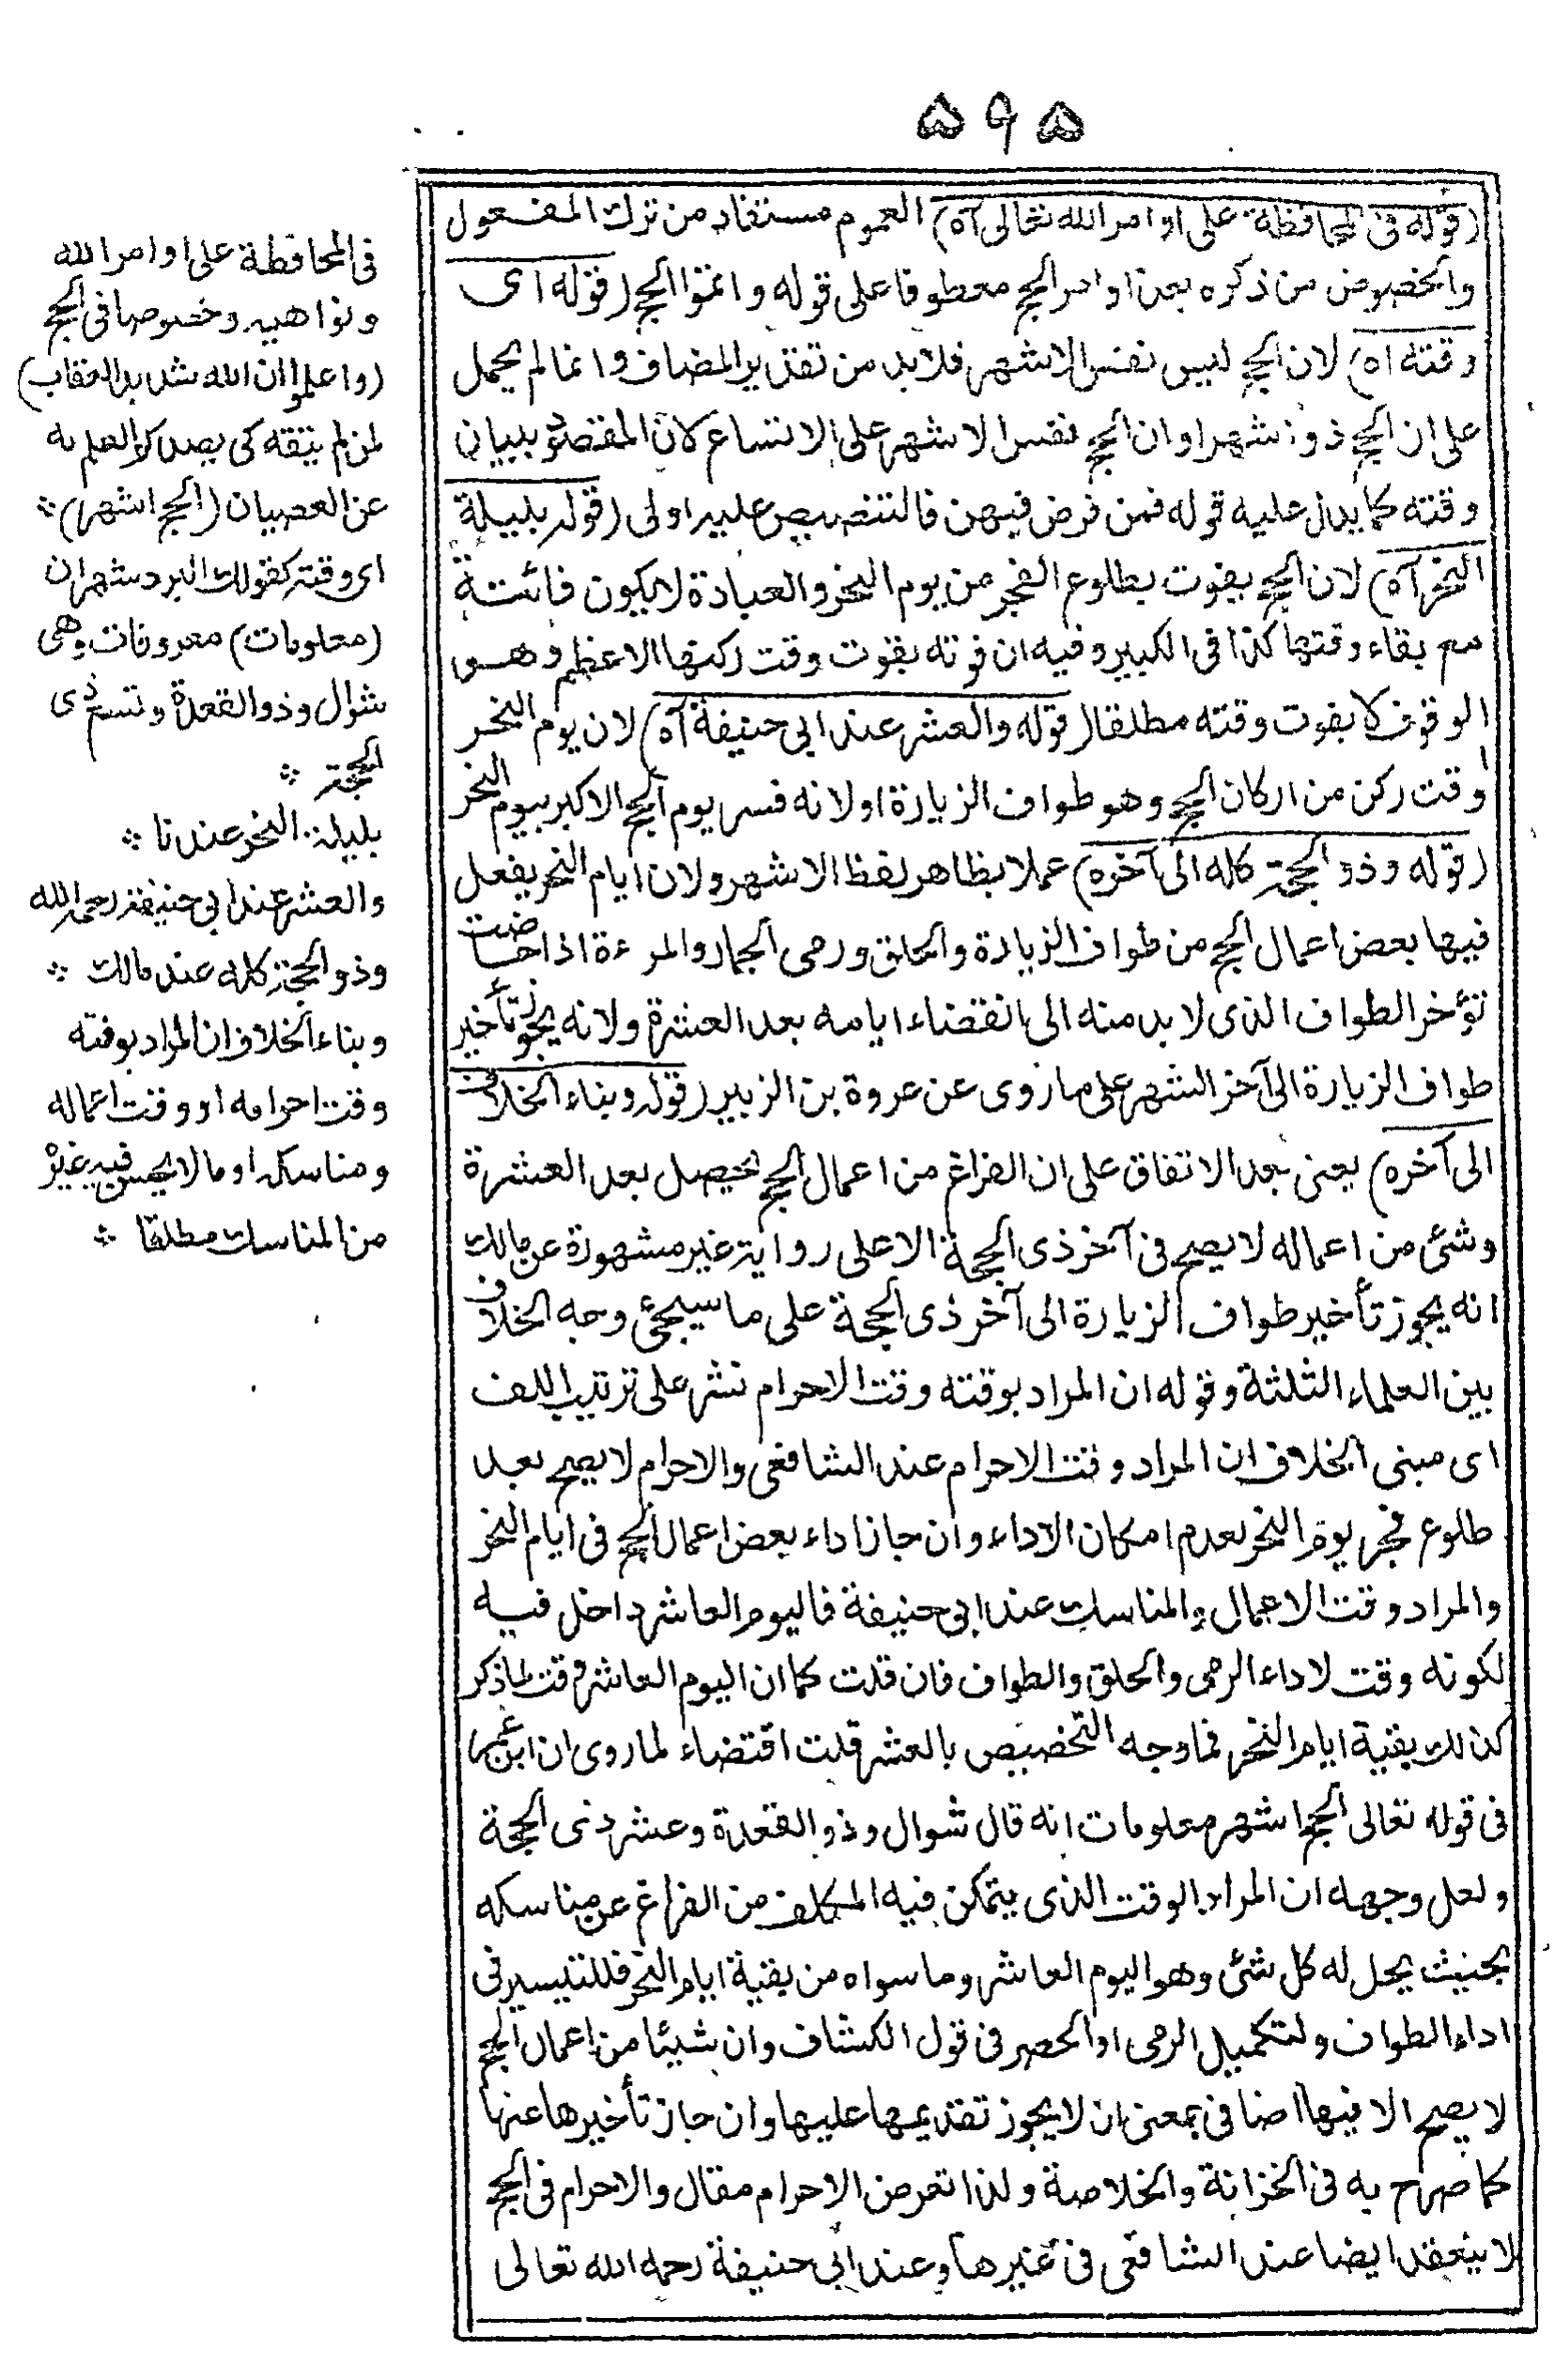 ۵۹۵
(قوله فى المحافظة على اوامر الله تعالى آه) العموم مستفاد من ترك المفعول
والخصوص من ذكره بعد اوامر الحج معطوفا على قوله واتموا الحج (قوله اى
وقته اه) لان الحج ليس نفس الاشهر فلا بد من تقدير المضاف وانما لم يحمل
على ان الحج ذو اشهر او ان الحج نفس الاشهر على الاتساع لان المقصود بيان
وقته كما يدل عليه قوله فمن فرض فيهن فالتنصيص عليه اولى (قوله بليلة
النحر آه) لان الحج يفوت بطلوع الفجر من يوم النحر والعبادة لا يكون فائتة
مع بقاء وقتها كذا فى الكبير وفيه ان فوته بفوت وقت ركنها الاعظم وهو
الوقوف لا بفوت وقته مطلقا (قوله والعشر عند ابى حنيفة آه) لان يوم النحر
وقت ركن من اركان الحج وهو طواف الزيارة اولانه فسر يوم الحج الاكبر بيوم النحر
(قوله وذو الحجة كله الى آخره) عملا بظاهر لفظ الاشهر ولان ايام النحر يفعل
فيها بعض اعمال الحج من طواف الزيارة والحلق ورمى الجمار والمرءة اذا حاضت
تؤخر الطواف الذى لا بد منه الى انقضاء ايامه بعد العشرة ولانه يجوز تأخير
طواف الزيارة الى آخر الشهر على ما روى عن عروة بن الزبير (قوله وبناء الخلاف
الى آخره) يعنى بعد الاتفاق على ان الفراغ من اعمال الحج يحصل بعد العشرة
وشئ من اعماله لا يصح فى آخر ذى الحجة الا على رواية غير مشهورة عن مالك
انه يجوز تأخير طواف الزيارة الى آخر ذى الحجة على ما سيجئ وجه الخلاف
بين العلماء الثلثة وقوله ان المراد بوقته وقت الاحرام نشر على ترتيب اللف
اى مبنى الخلاف ان المراد وقت الاحرام عند الشافعى والاحرام لا يصح بعد
طلوع فجر يوم النحر لعدم امكان الاداء وان جاز اداء بعض اعمال الحج فى ايام النحر
والمراد وقت الاعمال والمناسك عند ابى حنيفة فاليوم العاشر داخل فيه
لكونه وقت لاداء الرمى والحلق والطواف فان قلت كما ان اليوم العاشر وقت لما ذكر
كذلك بقية ايام النحر فما وجه التخصيص بالعشر قلت اقتضاء لما روى ان ابن عمر
فى قوله تعالى الحج اشهر معلومات انه قال شوال وذو القعدة وعشر ذى الحجة
ولعل وجهه ان المراد الوقت الذى يتمكن فيه المكلف من الفراغ عن مناسكه
بحيث يحل له كل شئ وهو اليوم العاشر وما سواه من بقية ايام النحر فللتيسير فى
اداء الطواف ولتكميل الرمى او الحصر فى قول الكشاف وان شيئا من اعمال الحج
لا يصح الا فيها اضافى بمعنى ان لا يجوز تقديمها عليها وان جاز تأخيرها عنها
كما صرح به فى الخزانة والخلاصة ولذا تعرض الاحرام فقال والاحرام فى الحج
لا ينعقد ايضا عند الشافعى فى غيرها وعند ابى حنيفة رحمه الله تعالى
فى المحافظة على اوامر الله
ونواهيه وخصوصا فى الحج
(واعلموا ان الله شديد العقاب)
لمن لم يتقه كى يصدكم العلم به
عن العصيان (الحج اشهر)
اى وقته كقولك البرد شهران
(معلومات) معروفات وهى
شوال وذو القعدة وتسع ذى
الحجة
بليلة النحر عندنا
والعشر عند ابى حنيفة رحمه الله
وذو الحجة كله عند مالك
وبناء الخلاف ان المراد بوقته
وقت احرامه او وقت اعماله
ومناسكه او ما لا يحسن فيه غيره
من المناسك مطلقا